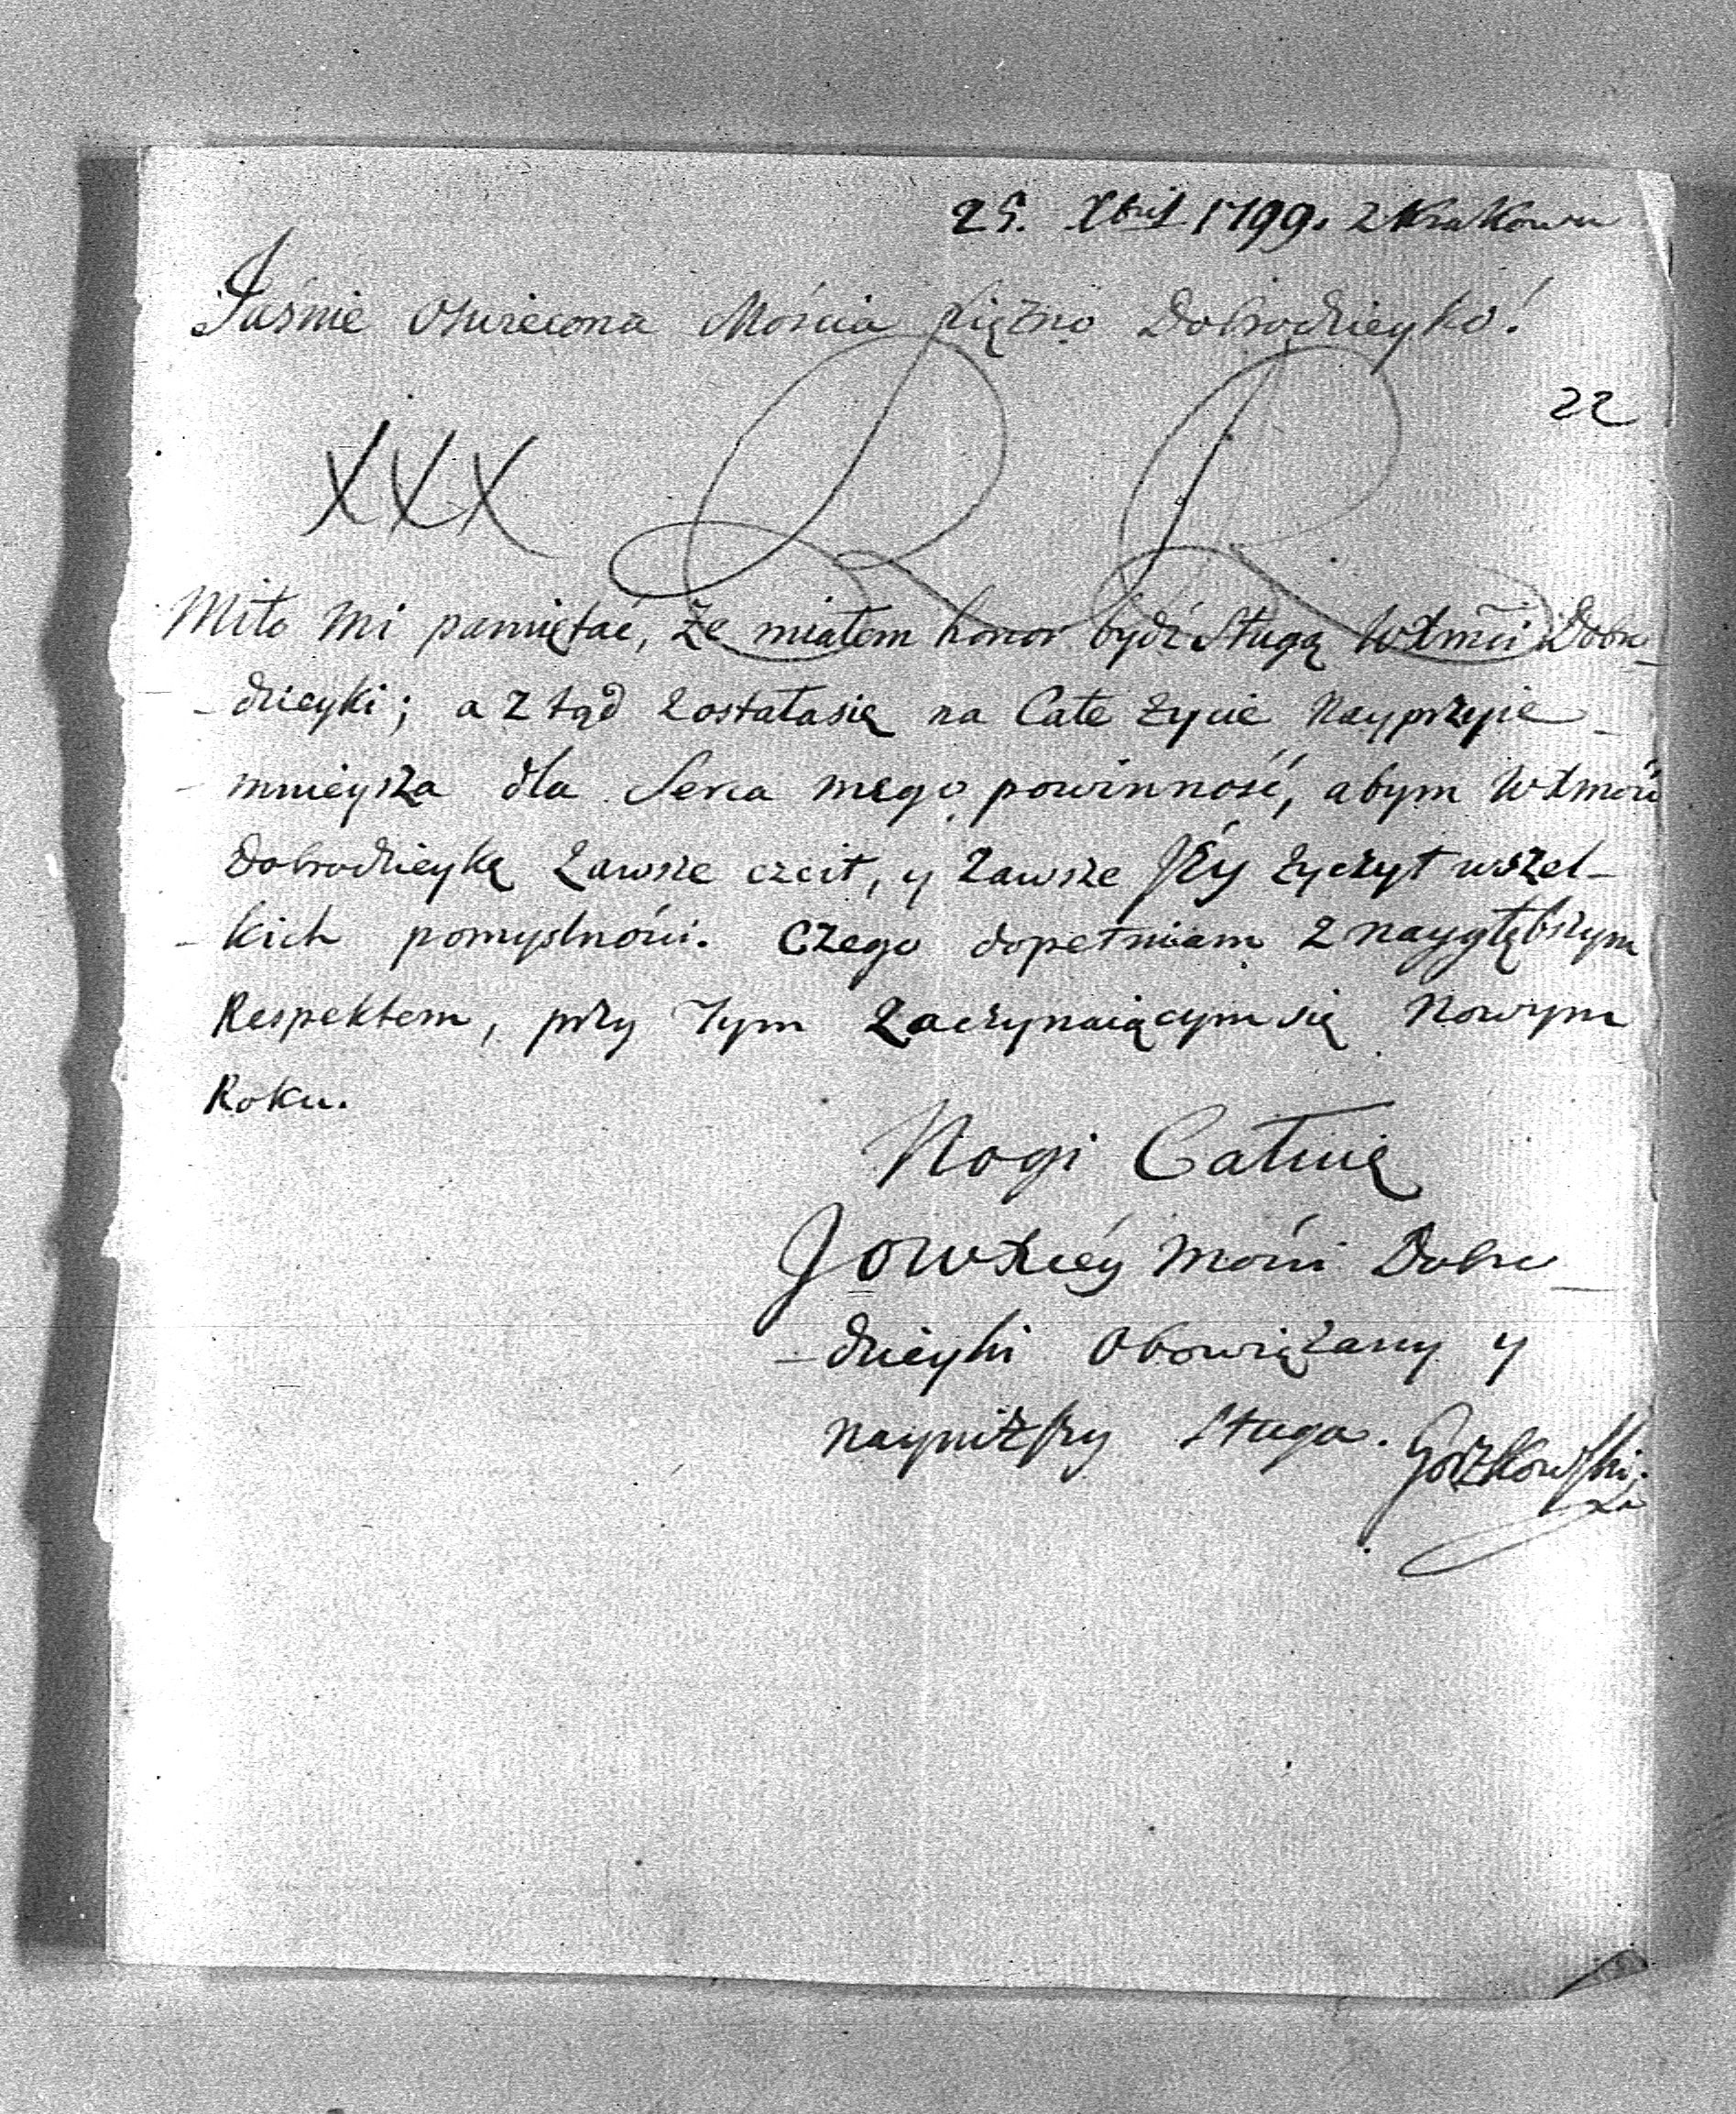 25. Xbris 1799. z Krakowa
Jaśnie Oświecona Mościa Xiężno Dobrodzieyko!
22
XXX
Miło mi pamiętać, że miałem honor bydź sługą WXMci Dobro-
-dzieyki; a z tąd zostałasię na Całe życie nayprzyie-
-mnieysza dla Serca mego powinność, abym WXMości
Dobrodzieykę zawsze czcił, y zawsze Jéy życzył wszel-
-kich pomyślności. Czego dopełniam z naygłębszym
Respektem, przy tym zaczynaiącymsię Nowym
Roku.
Nogi Całuię
JOWXcéy Mości Dobro-
-dzieyki Obowiązany y
nayniższy Sługa. Gorzkowski